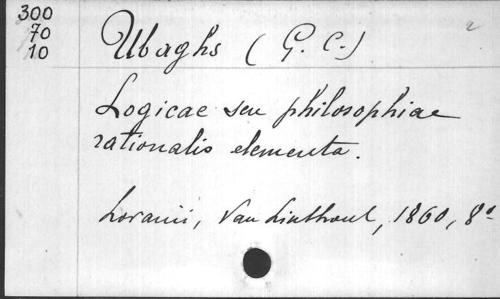 300
70
10
Ubaghs (G. C.)
2
Logicae seu philosophiae
rationalis elementa.
Lovanii, Van Linthout, 1860, 8°